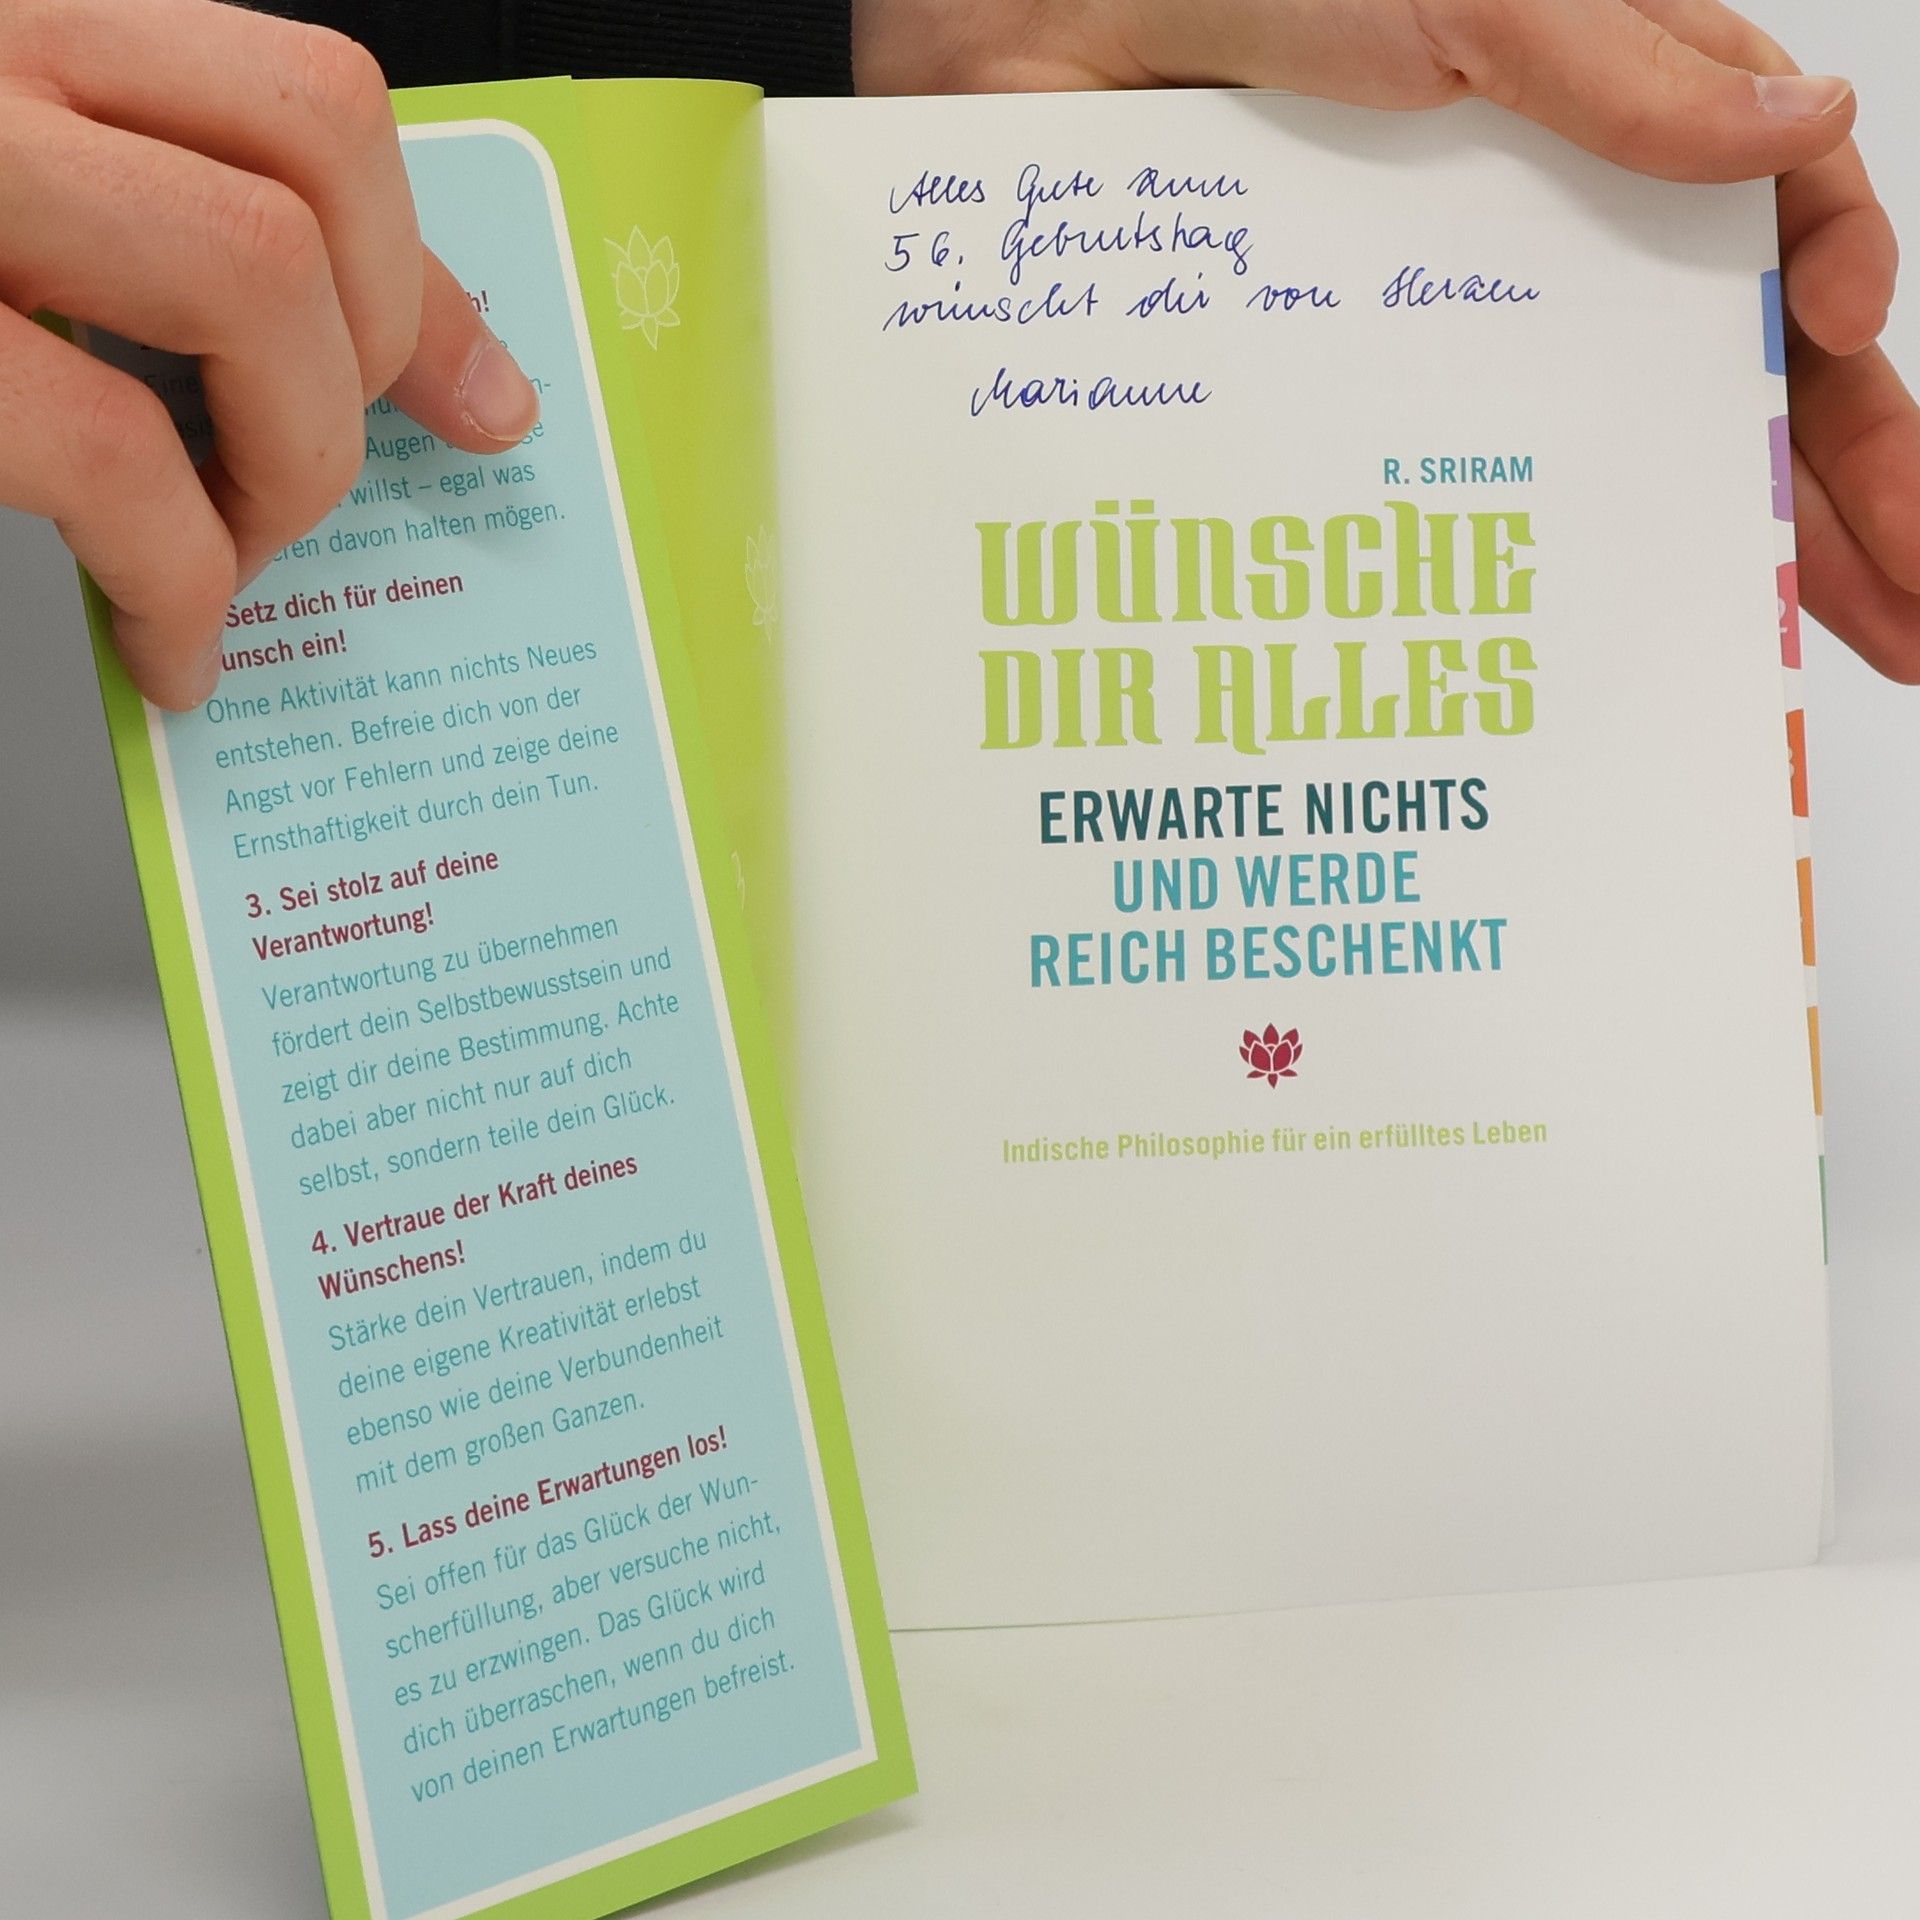 h!
Eine
n-
Augen
willst – egal was
davon halten mögen.
Setz dich für deinen
unsch ein!
Ohne Aktivität kann nichts Neues
entstehen. Befreie dich von der
Angst vor Fehlern und zeige deine
Ernsthaftigkeit durch dein Tun.
3. Sei stolz auf deine
Verantwortung!
Verantwortung zu übernehmen
fördert dein Selbstbewusstsein und
zeigt dir deine Bestimmung. Achte
dabei aber nicht nur auf dich
selbst, sondern teile dein Glück.
4. Vertraue der Kraft deines
Wünschens!
Stärke dein Vertrauen, indem du
deine eigene Kreativität erlebst
ebenso wie deine Verbundenheit
mit dem großen Ganzen.
5. Lass deine Erwartungen los!
Sei offen für das Glück der Wun-
scherfüllung, aber versuche nicht,
es zu erzwingen. Das Glück wird
dich überraschen, wenn du dich
von deinen Erwartungen befreist.
Alles Gute zum
56. Geburtstag
wünscht dir von Herzen
Marianne
R. SRIRAM
WÜNSCHE
DIR ALLES
ERWARTE NICHTS
UND WERDE
REICH BESCHENKT
Indische Philosophie für ein erfülltes Leben